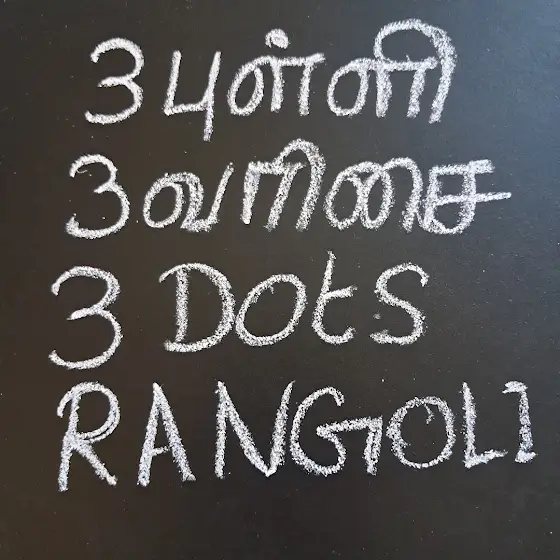 3 புள்ளி
3 வரிசை
3 Dots
RANGOLI